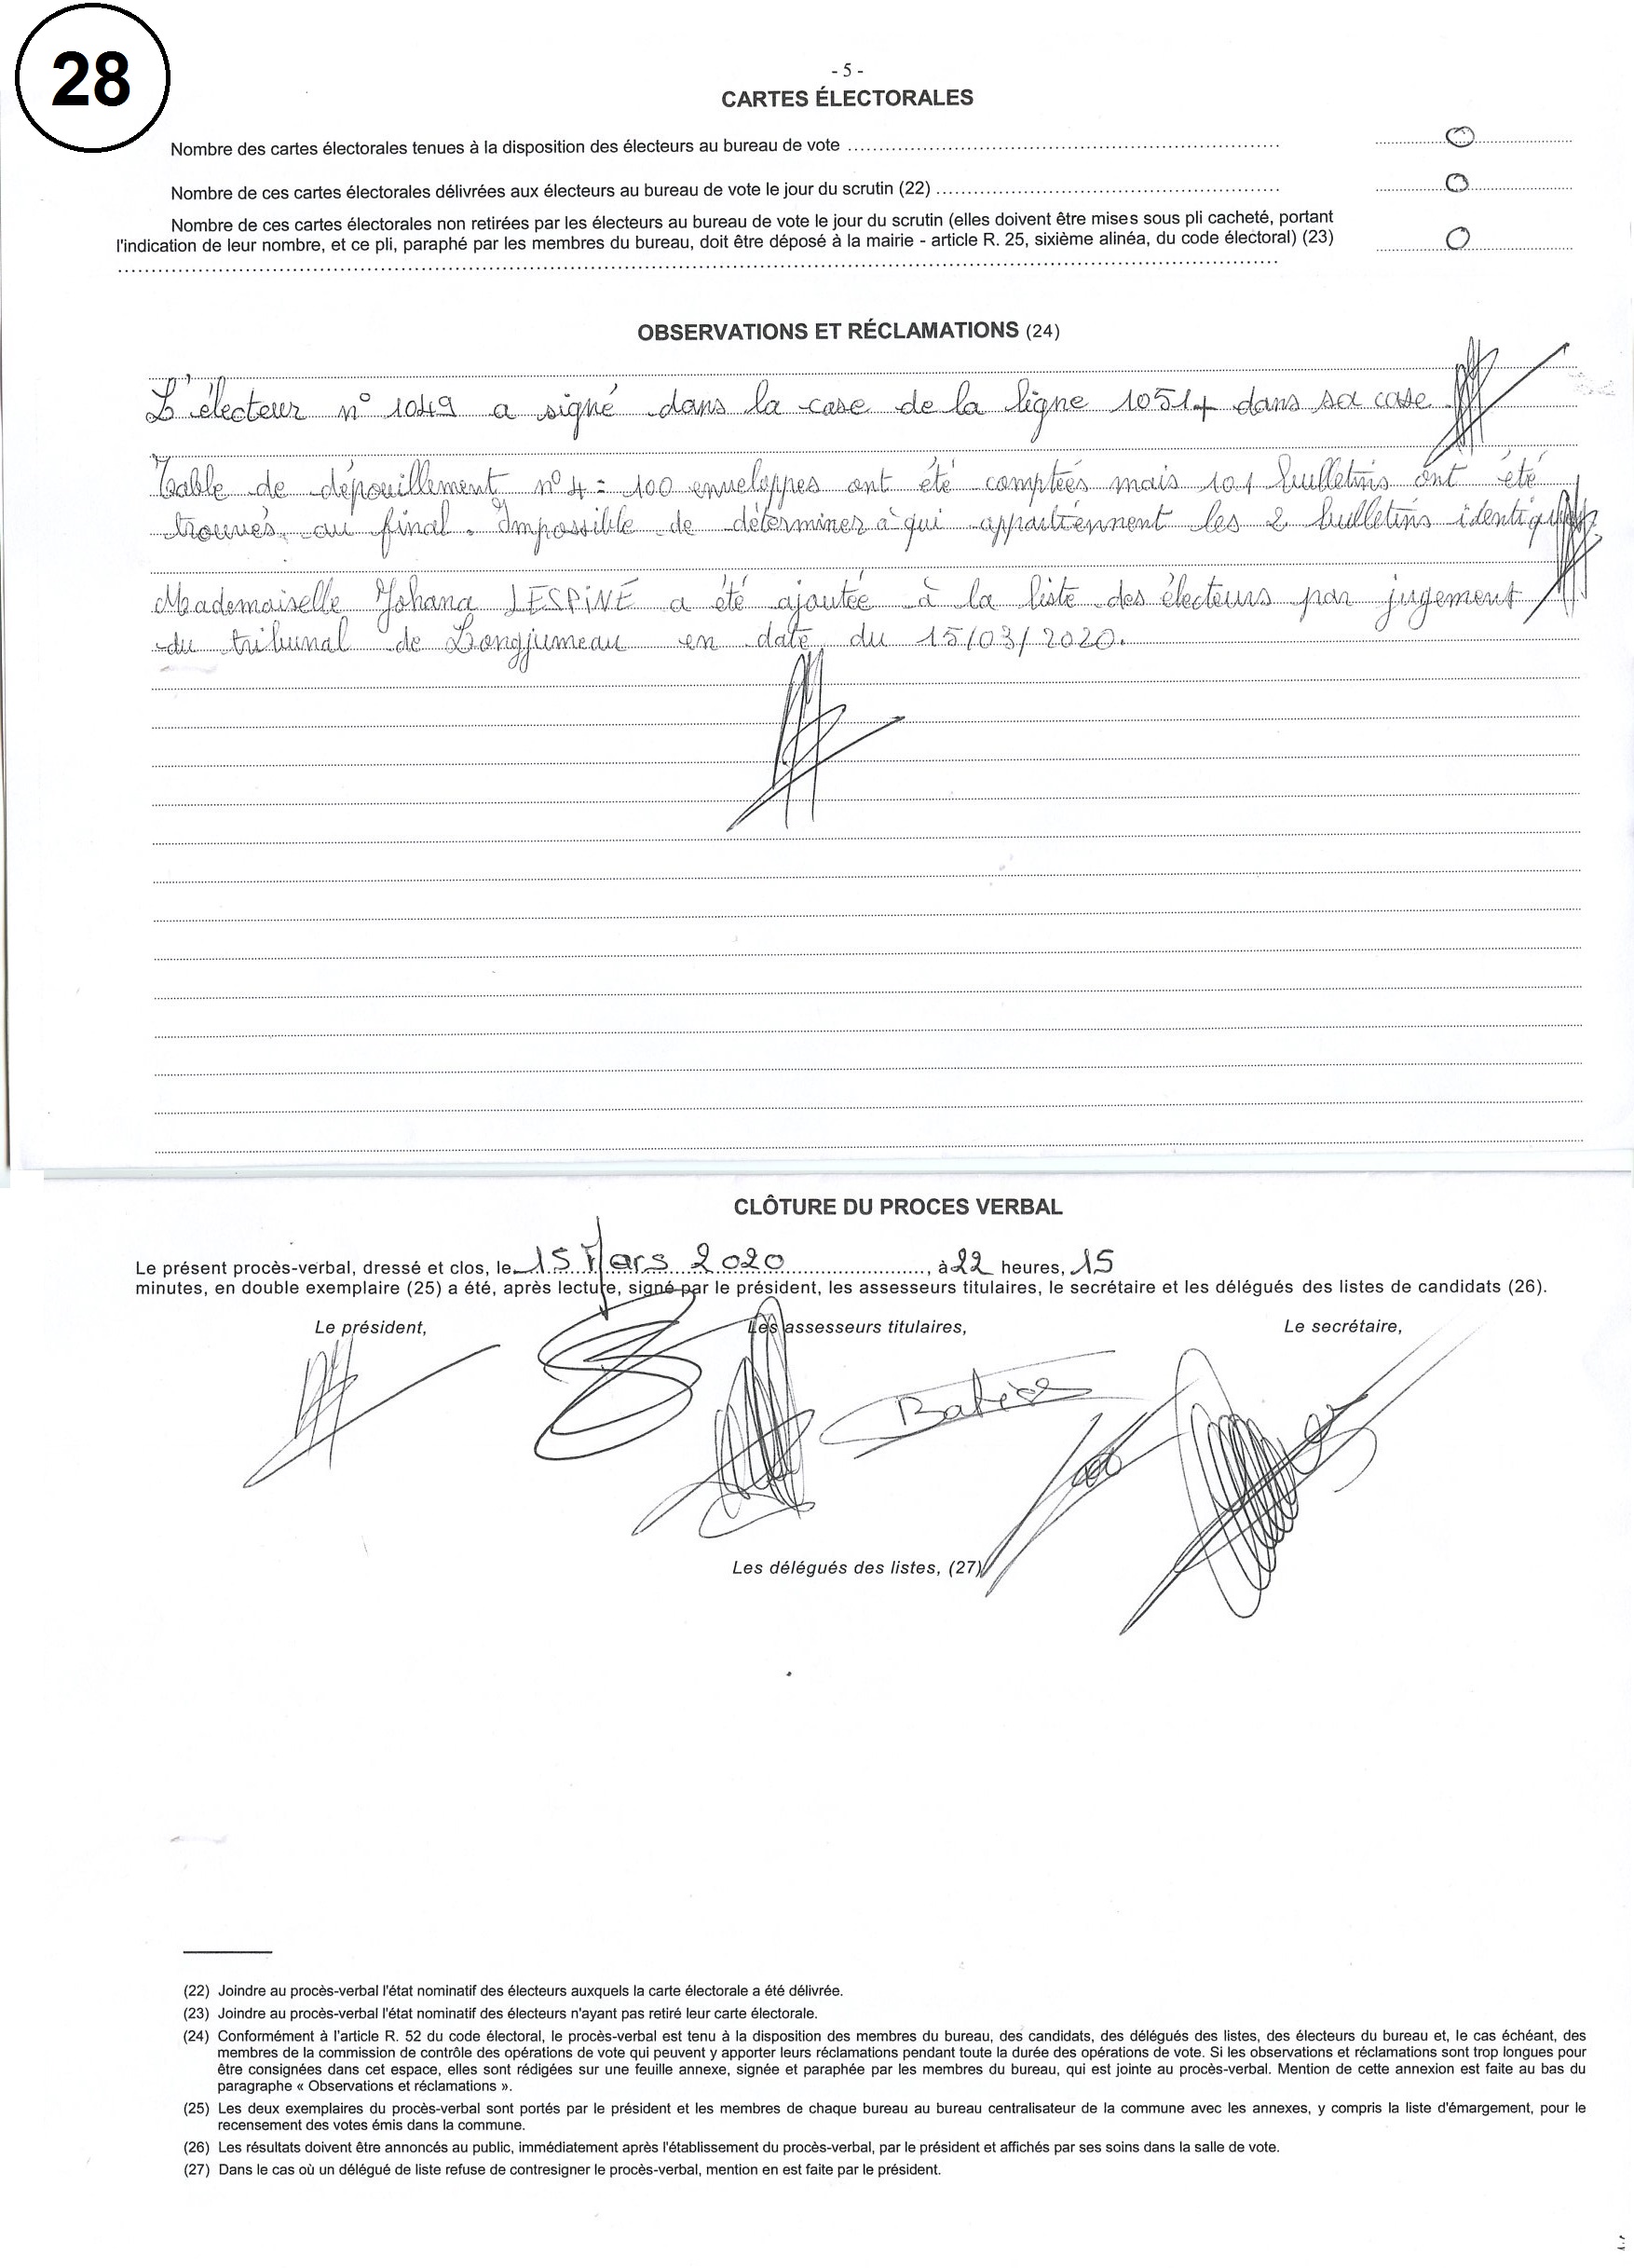 28
- 5 -
CARTES ÉLECTORALES
Nombre des cartes électorales tenues à la disposition des électeurs au bureau de vote ........ 0
Nombre de ces cartes électorales délivrées aux électeurs au bureau de vote le jour du scrutin (22) ........ 0
Nombre de ces cartes électorales non retirées par les électeurs au bureau de vote le jour du scrutin (elles doivent être mises sous pli cacheté, portant
l'indication de leur nombre, et ce pli, paraphé par les membres du bureau, doit être déposé à la mairie - article R. 25, sixième alinéa, du code électoral) (23) 0
OBSERVATIONS ET RÉCLAMATIONS (24)
L'électeur n° 1049 a signé dans la case de la ligne 1051 + dans sa case
Table de dépouillement n° 4 = 100 enveloppes ont été comptées mais 101 bulletins ont été
trouvés au final. Impossible de déterminer à qui appartiennent les 2 bulletins
Mademoiselle Johana LESPINE a été ajoutée à la liste des électeurs par jugement
du tribunal de Longjumeau en date du 15/03/2020.
CLÔTURE DU PROCES VERBAL
Le présent procès-verbal, dressé et clos, le 15 Mars 2020 ........, à 22 heures, 15
minutes, en double exemplaire (25) a été, après lecture, signé par le président, les assesseurs titulaires, le secrétaire et les délégués des listes de candidats (26).
Le président, Les assesseurs titulaires, Le secrétaire,
Les délégués des listes, (27)
(22) Joindre au procès-verbal l'état nominatif des électeurs auxquels la carte électorale a été délivrée.
(23) Joindre au procès-verbal l'état nominatif des électeurs n'ayant pas retiré leur carte électorale.
(24) Conformément à l'article R. 52 du code électoral, le procès-verbal est tenu à la disposition des membres du bureau, des candidats, des délégués des listes, des électeurs du bureau et, le cas échéant, des
membres de la commission de contrôle des opérations de vote qui peuvent y apporter leurs réclamations pendant toute la durée des opérations de vote. Si les observations et réclamations sont trop longues pour
être consignées dans cet espace, elles sont rédigées sur une feuille annexe, signée et paraphée par les membres du bureau, qui est jointe au procès-verbal. Mention de cette annexion est faite au bas du
paragraphe « Observations et réclamations ».
(25) Les deux exemplaires du procès-verbal sont portés par le président et les membres de chaque bureau au bureau centralisateur de la commune avec les annexes, y compris la liste d'émargement, pour le
recensement des votes émis dans la commune.
(26) Les résultats doivent être annoncés au public, immédiatement après l'établissement du procès-verbal, par le président et affichés par ses soins dans la salle de vote.
(27) Dans le cas où un délégué de liste refuse de contresigner le procès-verbal, mention en est faite par le président.